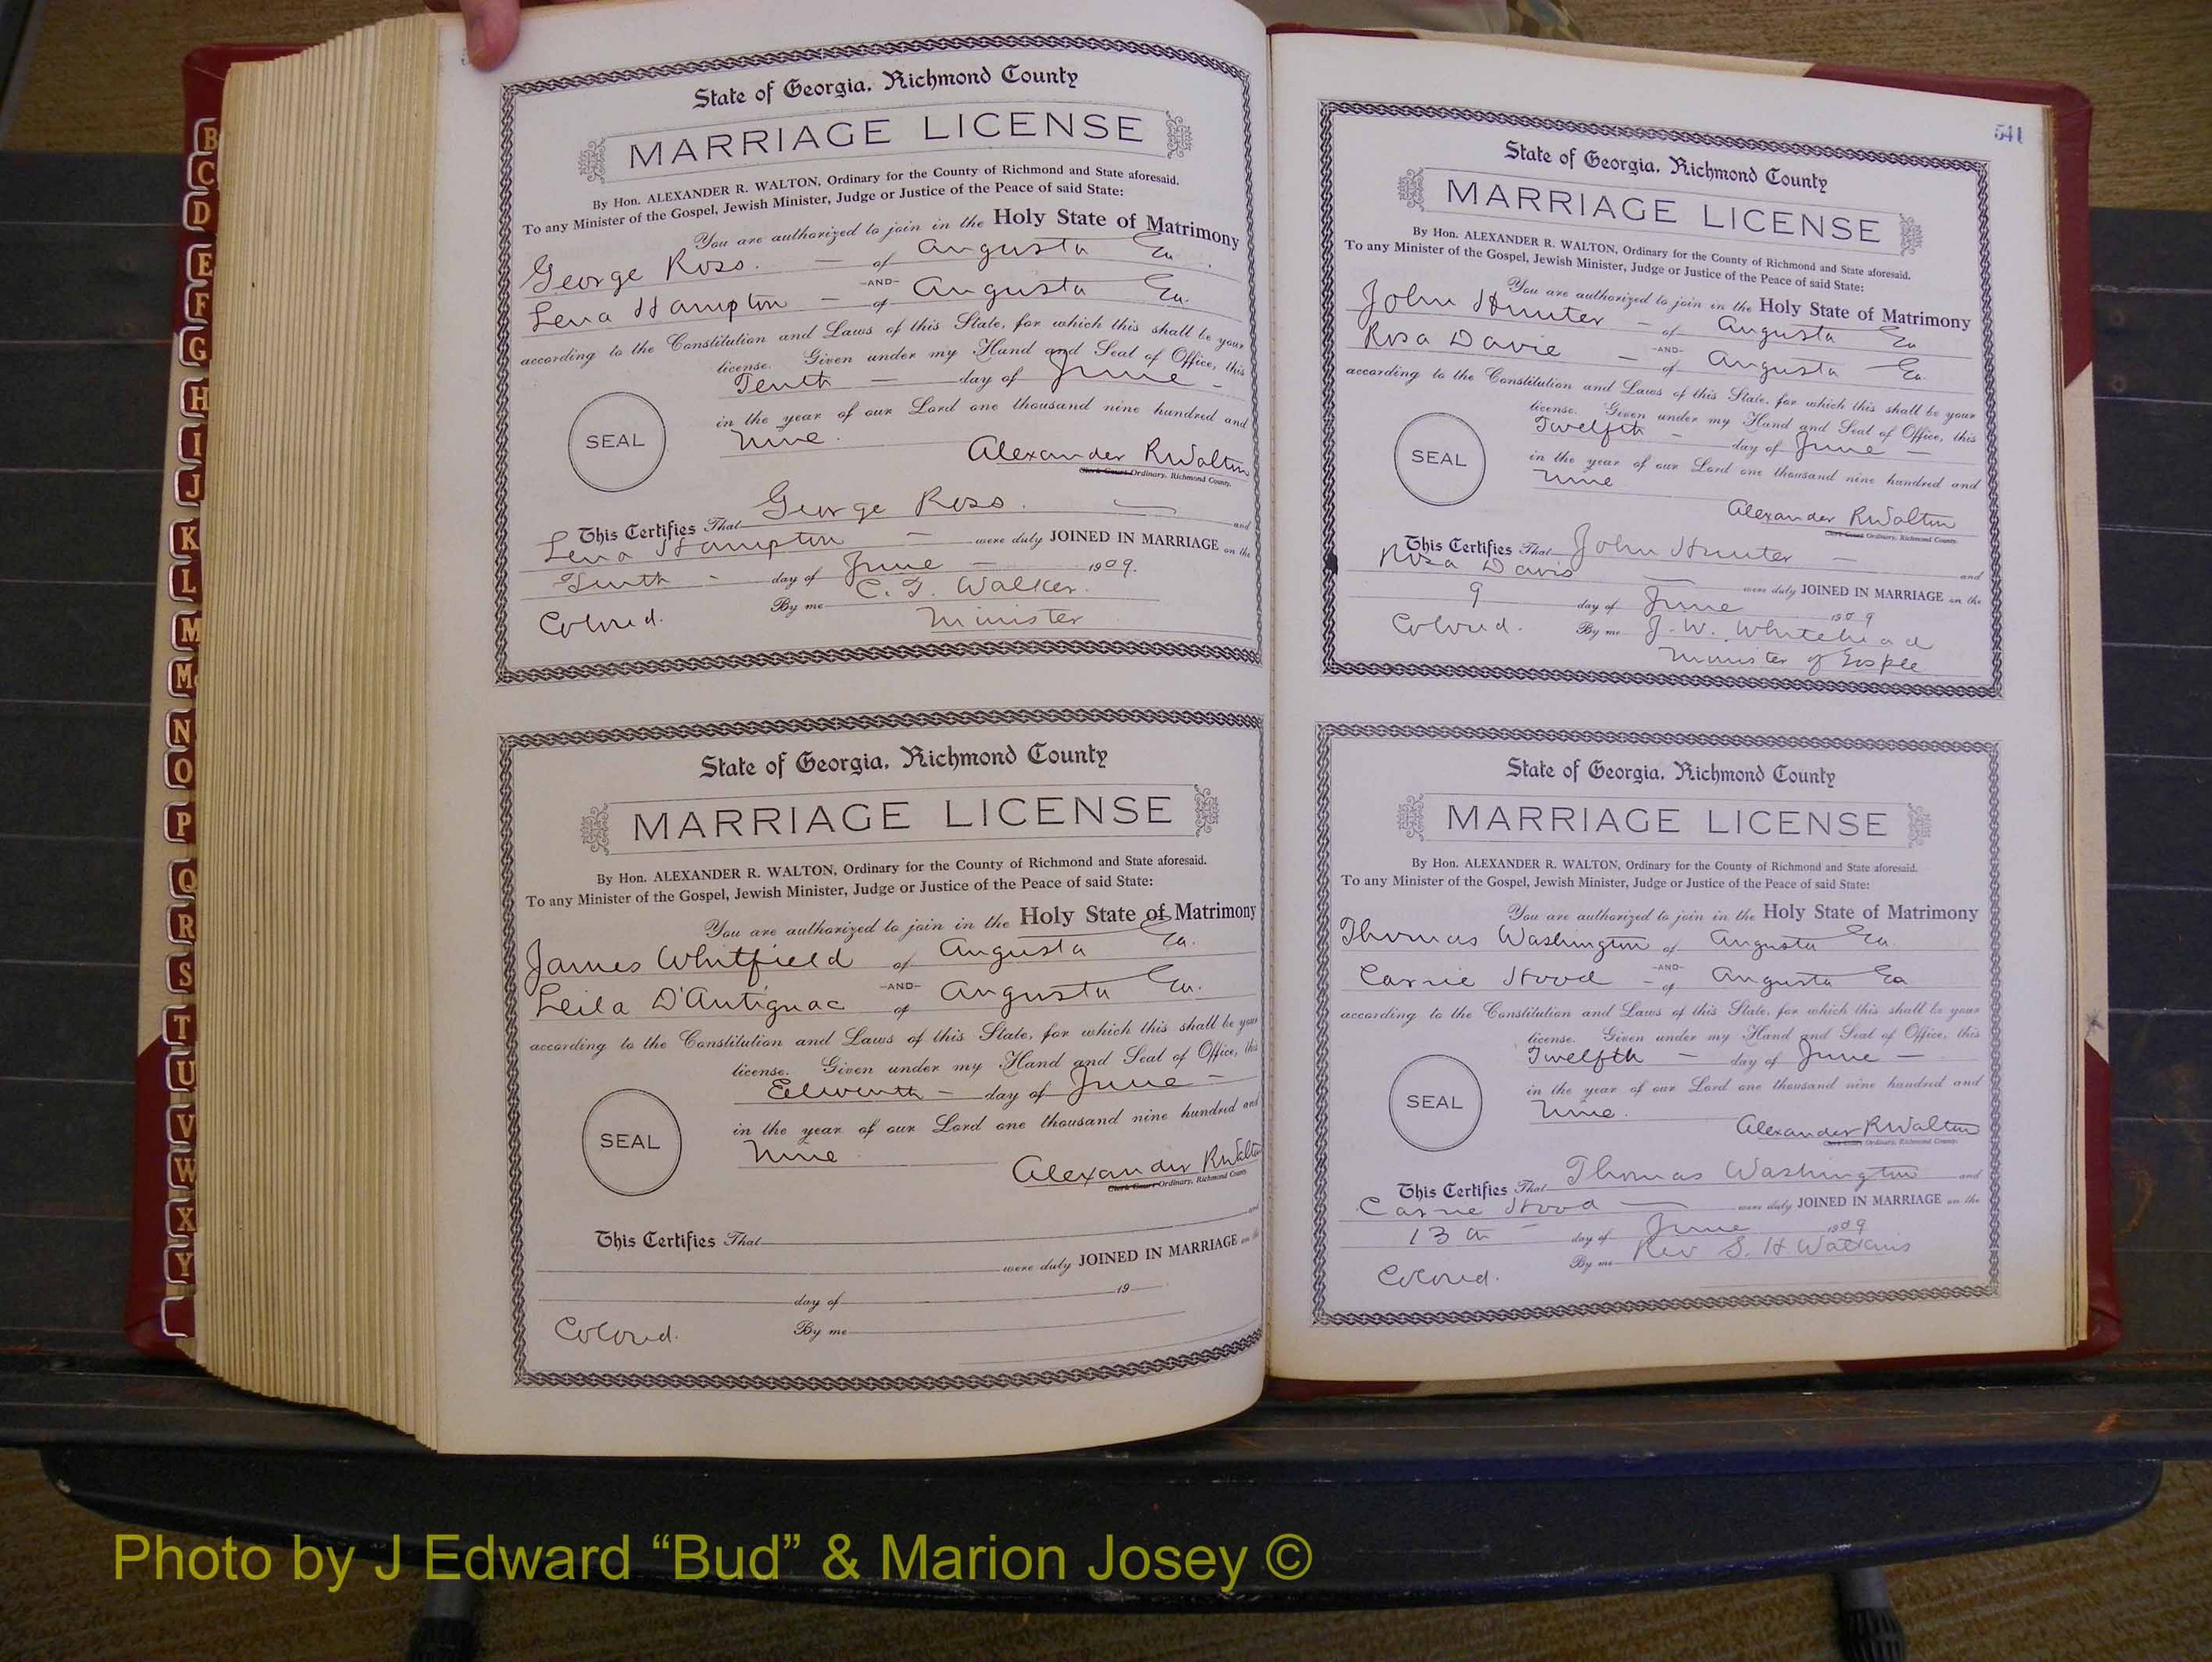 B
C
D
E
F
G
H
I
J
K
L
M
Mc
N
O
P
Q
R
S
T
U
V
W
X
Y
State of Georgia, Richmond County
MARRIAGE LICENSE
By Hon. ALEXANDER R. WALTON, Ordinary for the County of Richmond and State aforesaid.
To any Minister of the Gospel, Jewish Minister, Judge or Justice of the Peace of said State:
You are authorized to join in the Holy State of Matrimony
George Ross. — of Augusta Ga.
-AND-
Lena Hampton — of Augusta Ga.
according to the Constitution and Laws of this State, for which this shall be your
license. Given under my Hand and Seal of Office, this
Tenth — day of June —
in the year of our Lord one thousand nine hundred and
SEAL
nine.
Alexander R Walton
Clerk Court Ordinary, Richmond County.
This Certifies That George Ross. — and
Lena Hampton — were duly JOINED IN MARRIAGE on the
Tenth - day of June — 1909.
Colored. By me C. T. Walker.
Minister
State of Georgia, Richmond County
MARRIAGE LICENSE
By Hon. ALEXANDER R. WALTON, Ordinary for the County of Richmond and State aforesaid.
To any Minister of the Gospel, Jewish Minister, Judge or Justice of the Peace of said State:
You are authorized to join in the Holy State of Matrimony
James Whitfield of Augusta Ga.
-AND-
Leila D'Antignac of Augusta Ga.
according to the Constitution and Laws of this State, for which this shall be your
license. Given under my Hand and Seal of Office, this
day of June —
in the year of our Lord one thousand nine hundred and
SEAL
nine
Alexander R Walton
Clerk Court Ordinary, Richmond County
and
This Certifies That
were duly JOINED IN MARRIAGE on the
day of 19
Colored. By me
541
State of Georgia, Richmond County
MARRIAGE LICENSE
By Hon. ALEXANDER R. WALTON, Ordinary for the County of Richmond and State aforesaid.
To any Minister of the Gospel, Jewish Minister, Judge or Justice of the Peace of said State:
You are authorized to join in the Holy State of Matrimony
John Hunter — of Augusta Ga
-AND-
Rosa Davie — of Augusta Ga.
according to the Constitution and Laws of this State, for which this shall be your
license. Given under my Hand and Seal of Office, this
Twelfth — day of June —
in the year of our Lord one thousand nine hundred and
SEAL
nine
Alexander R Walton
Clerk Court Ordinary, Richmond County
This Certifies That John Hunter — and
Rosa Davis — were duly JOINED IN MARRIAGE on the
9 day of June 1909
Colored. By me J. W. Whitehead
Minister of Gosple
State of Georgia, Richmond County
MARRIAGE LICENSE
By Hon. ALEXANDER R. WALTON, Ordinary for the County of Richmond and State aforesaid.
To any Minister of the Gospel, Jewish Minister, Judge or Justice of the Peace of said State:
You are authorized to join in the Holy State of Matrimony
Thomas Washington of Augusta Ga.
-AND-
Carrie Hood — of Augusta Ga
according to the Constitution and Laws of this State, for which this shall be your
license. Given under my Hand and Seal of Office, this
Twelfth — day of June —
in the year of our Lord one thousand nine hundred and
SEAL
nine.
Alexander R Walton
Clerk Court Ordinary, Richmond County
This Certifies That Thomas Washington and
Carrie Hood — were duly JOINED IN MARRIAGE on the
13th — day of June 1909
By me Rev S. H Watkins
Colored.
Photo by J Edward “Bud” & Marion Josey ©